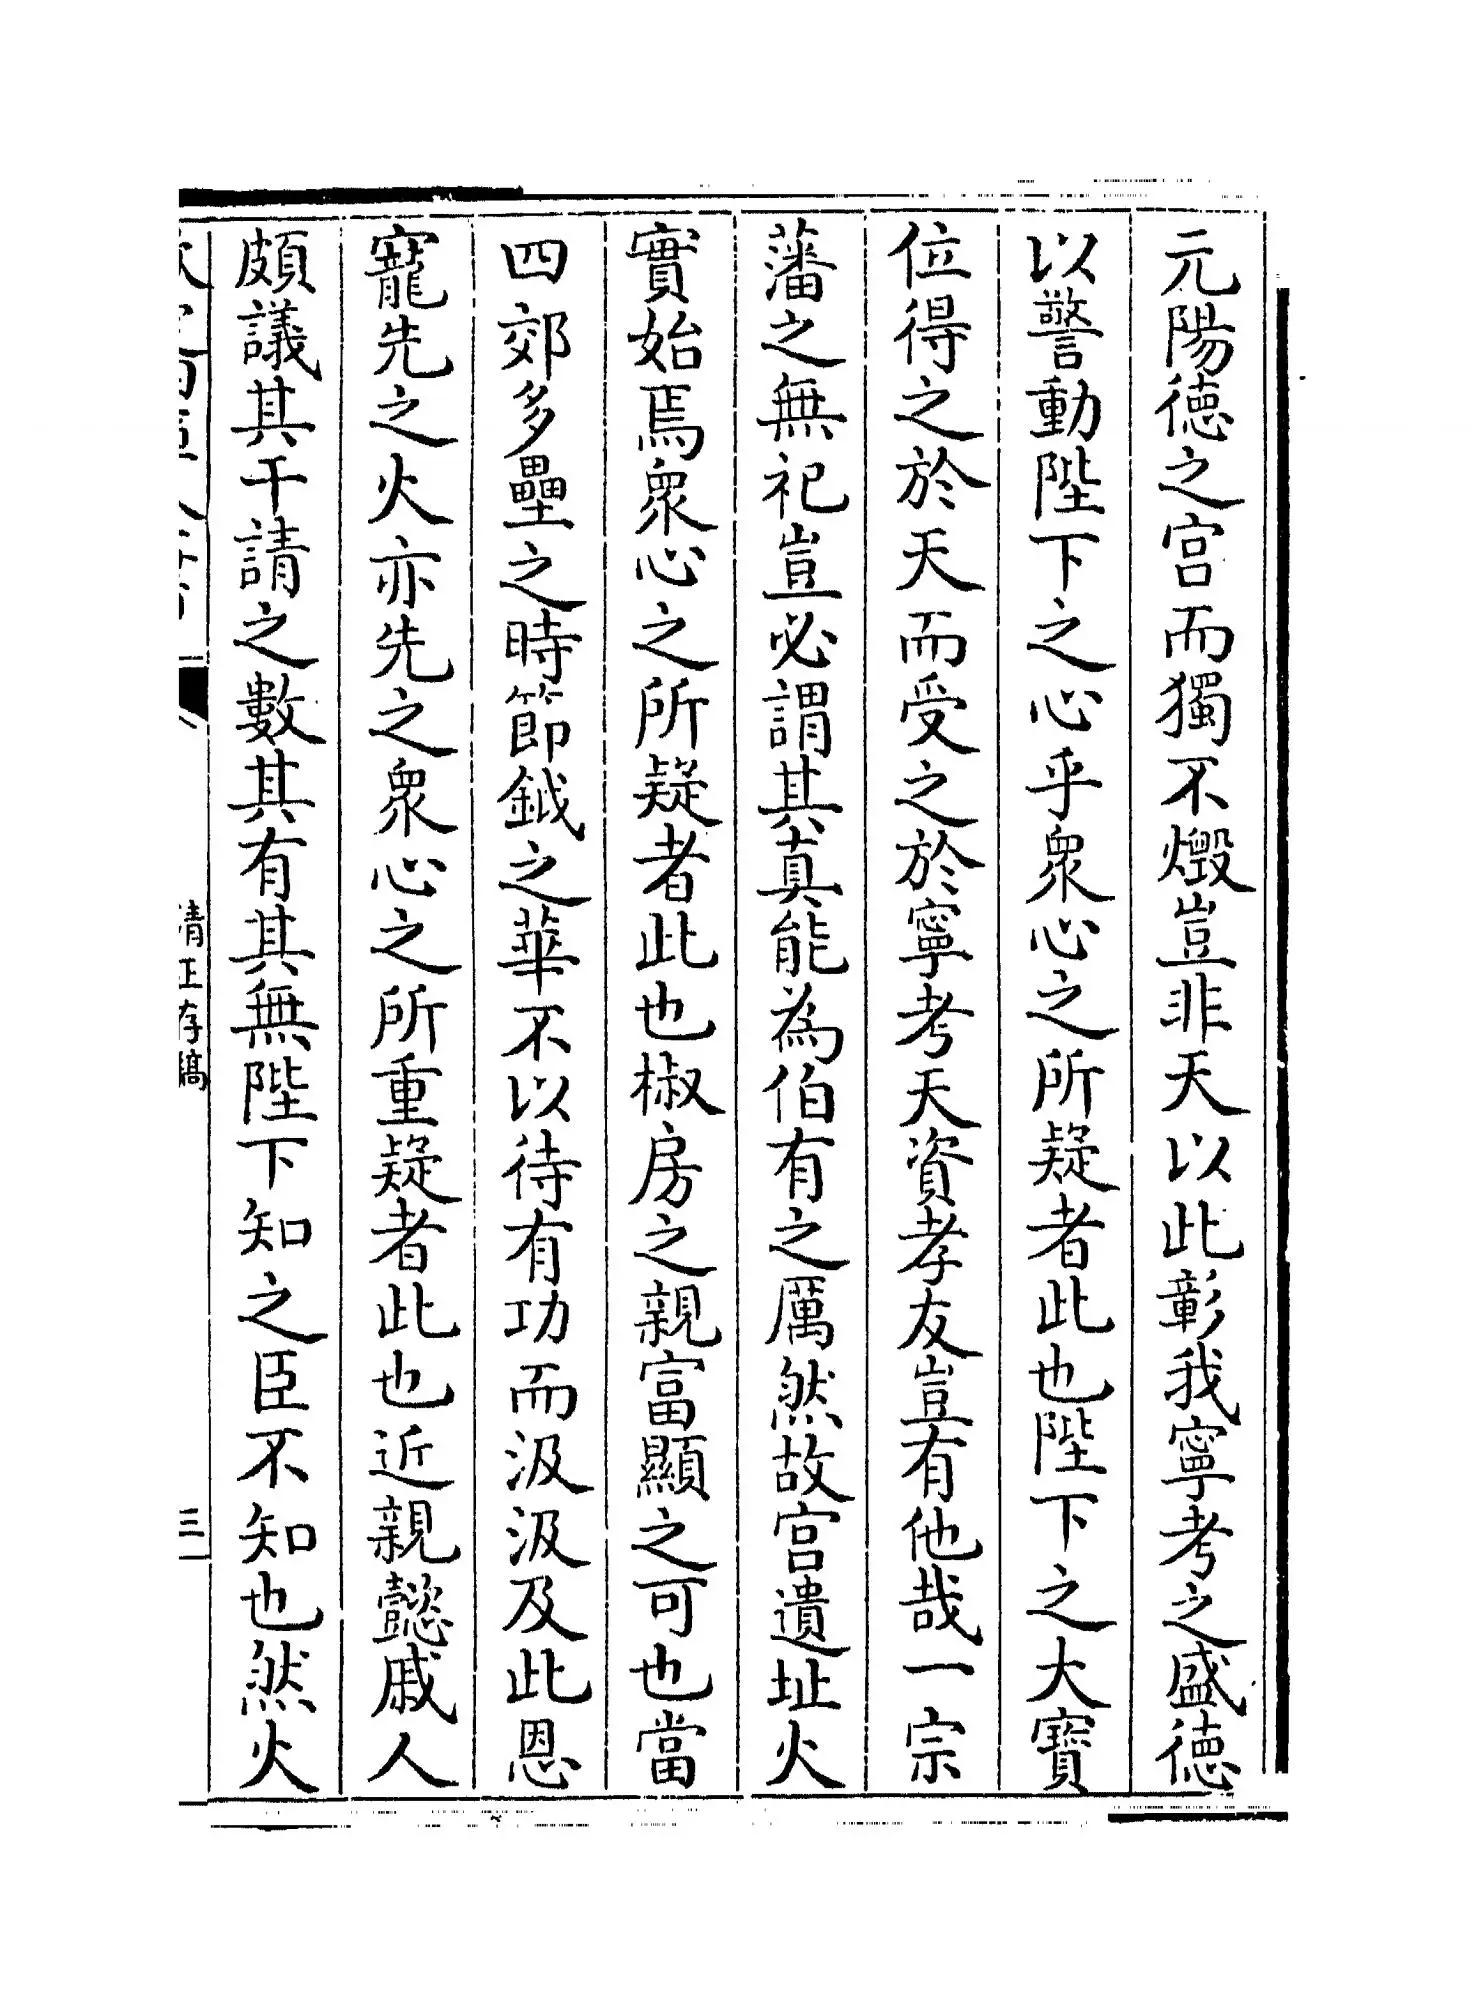 元陽徳之宫而獨不燬豈非天以此彰我寧考之盛徳
以警動陛下之心乎衆心之所疑者此也陛下之大寶
位得之於天而受之於寧考天資孝友豈有他哉一宗
藩之無祀豈必謂其真能為伯有之厲然故宫遺址火
實始焉衆心之所疑者此也椒房之親富顯之可也當
四郊多壘之時節鉞之華不以待有功而汲汲及此恩
寵先之火亦先之衆心之所重疑者此也近親懿戚人
頗議其干請之數其有其無陛下知之臣不知也然火
清正存稿
三